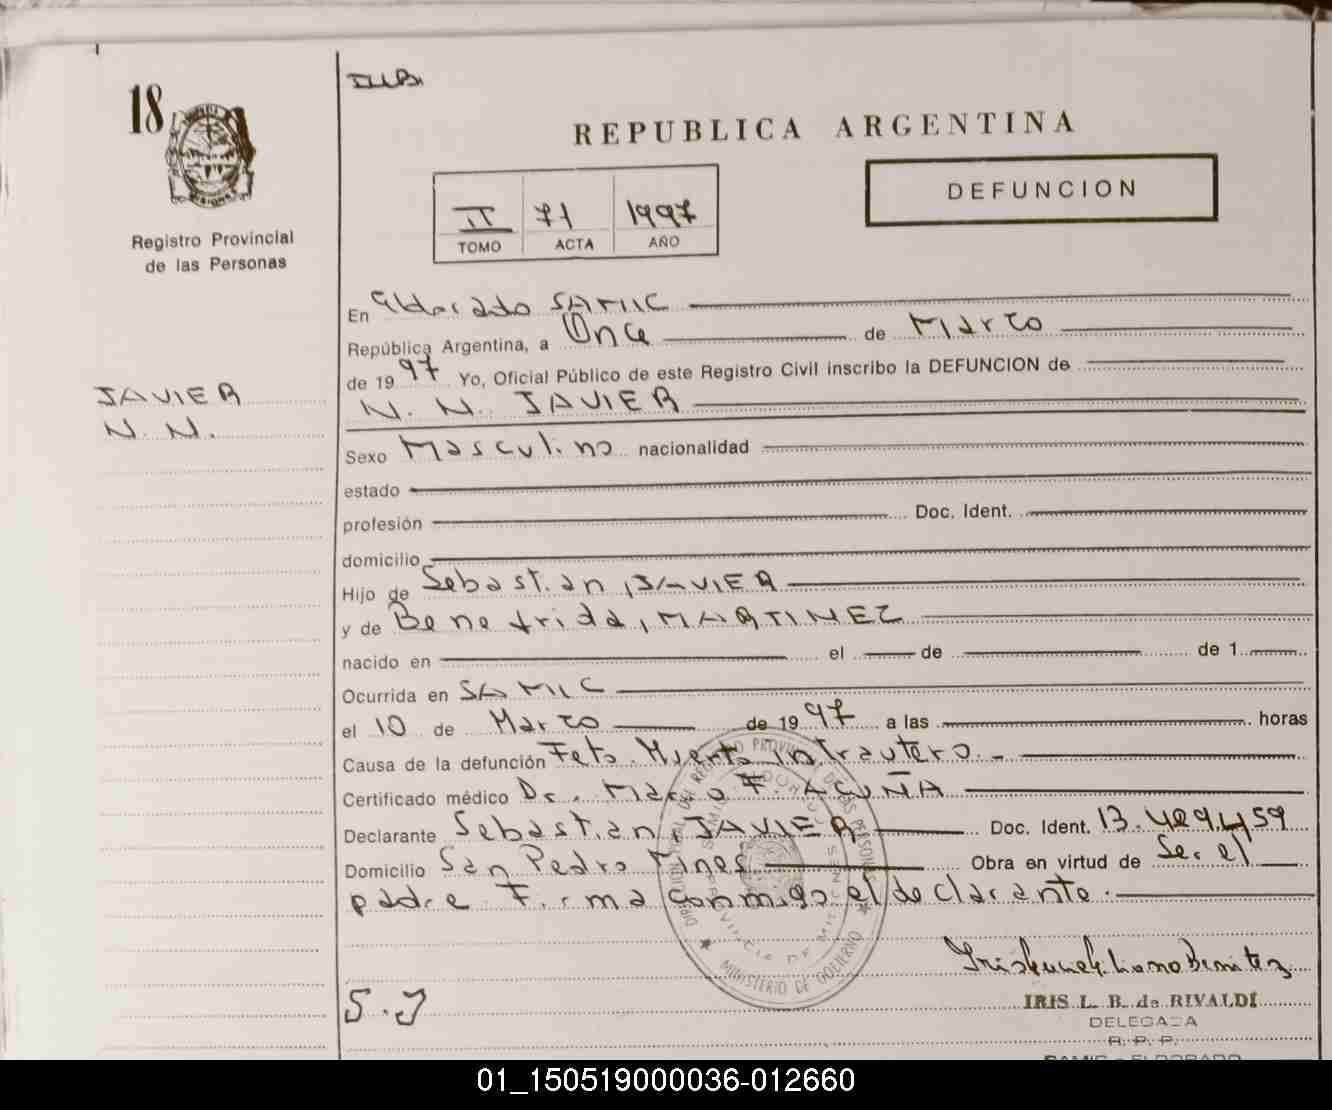 18
I.L.B.
REPUBLICA ARGENTINA
DEFUNCION
II 71 1997
TOMO ACTA AÑO
Registro Provincial
de las Personas
JAVIER
N. N.
En Eldorado SAMIC
República Argentina, a Once de Marzo
de 1997 Yo, Oficial Público de este Registro Civil inscribo la DEFUNCION de
N. N. JAVIER
Sexo Masculino nacionalidad
estado
profesión Doc. Ident.
domicilio
Hijo de Sebastian, JAVIER
y de Benefrida, MARTINEZ
nacido en el de de 1
Ocurrida en SAMIC
el 10 de Marzo de 1997 a las horas
Causa de la defunción Feto Muerto intrautero.-
Certificado médico Dr. Mario F. ACUÑA
Declarante Sebastian, JAVIER Doc. Ident. 13.429.459
Domicilio San Pedro Mnes Obra en virtud de Ser el
padre Firma conmigo el declarante.
MINISTERIO DE GOBIERNO
PROVINCIA DE MISIONES
S.J
IRIS L. B. de RIVALDI
DELEGADA
R. P. P.
SAMIC - ELDORADO
01_150519000036-012660